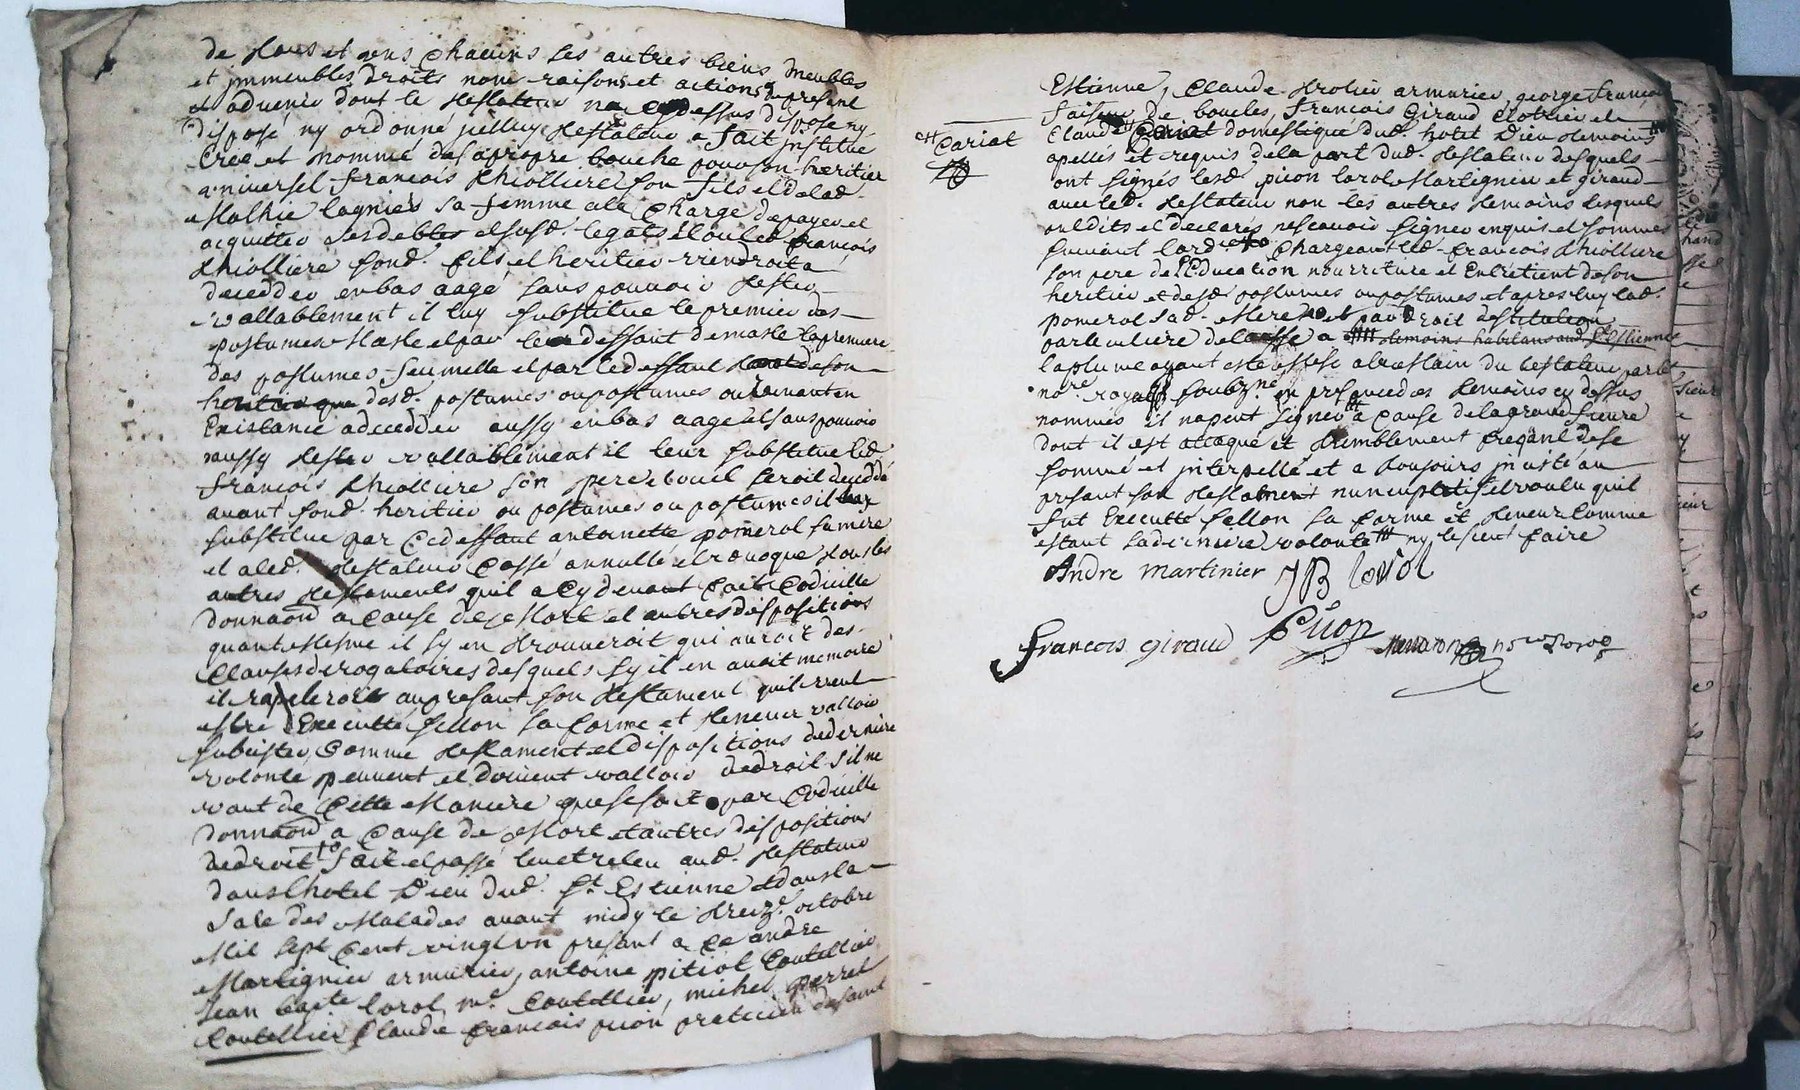 de tous et uns chacuns ses autres biens meubles
et jmmeubles droits noms raisons et actions present
et advenir dont le testateur na cy dessus dispose ny
disposé ny ordonné jcelluy testateur a fait jnstitue
cree et nommé de sa propre bouche pour son heritier
universel francois thiolliere son fils et de lad.
Mathie lagnier sa femme a la charge de payer et
acquitter ses debtes et susd. legats et ou led. francois
thiolliere sond. fils et heritier viendroit a
decedder en bas aage sans pouvoir tester
vallablement il luy substitue le premier des
postumes masle et par le deffaut de masle la premiere
des postumes feumelle et par le deffaut de son
heritier que desd. postumes ou postumes
Existance a decedder aussy en bas aage et sans pouvoir
aussy tester vallablement il leur substitue led.
francois thiolliere son pere et ou il seroit decedde
avant sond. heritier ou postumes ou postumes il
substitue par ce deffaut antoinette pomerol sa mere
et a led. testateur cassé annullé et revoque tous les
autres testaments quil a cy devant fait codicille
donnaon a cause de mort et autres dispositions
quant mesme il sy en trouveroit qui auroit des
clauses derogatoires desquels sy il en avoit memoire
il rapeleroit au presant son testament quil veut
estre Executté sellon sa forme et teneur valloir
subsister comme testament et dispositions de derniere
volonte peuvent et doivent valloir de droit s'il ne
vaut de cette maniere que se soit par codicille
donnaon a cause de mort et autres dispositions
de droit fait et passé leu et releu aud. testateur
dans lhotel Dieu dud. st Estienne et dans la
sale des malades avant midy le treize octobre
mil sept cent vingt un presant a ce andre
Martignier armurier, antoine pitiot coutellier
Jean bapte lorol mre coutellier, michel perret
coutellier claude francois picon praticien de saint
Estienne, Claude trolier armurier, george francois
faiseur de boucles, francois Giraud clotrier et
Claude Cariat domestique dud. hotel Dieu temoins
apellés et requis de la part dud. testateur desquels
ont signés lesd. picon lorol Martignier et giraud
avec led. testateur non les autres temoins lesquels
ont dits et declarés ne scavoir signer enquis et sommés
suivant lord. chargeant led. francois thiolliere
son pere de l'Education nourriture et Entretient de son
heritier et desd. postumes ou postumes et apres luy lad.
pomerol sad. mere et par droit destitution
particuliere temoins habitans aud. st Estienne
la plume ayant esté a la main du testateur par le
nore royal soubzné en presance des temoins cy dessus
nommés il na peut signer a cause de la grand fievre
dont il est attaqué et tremblement freqant de se
sommé et jnterpellé et a toujours jnsisté au
presant son testament nuncupatif et voulu quil
fut Executté sellon sa forme et teneur comme
estant sa derniere volonte ny le sient faire
Cariat
Andre martinier JB lorol
francois giraud Picon